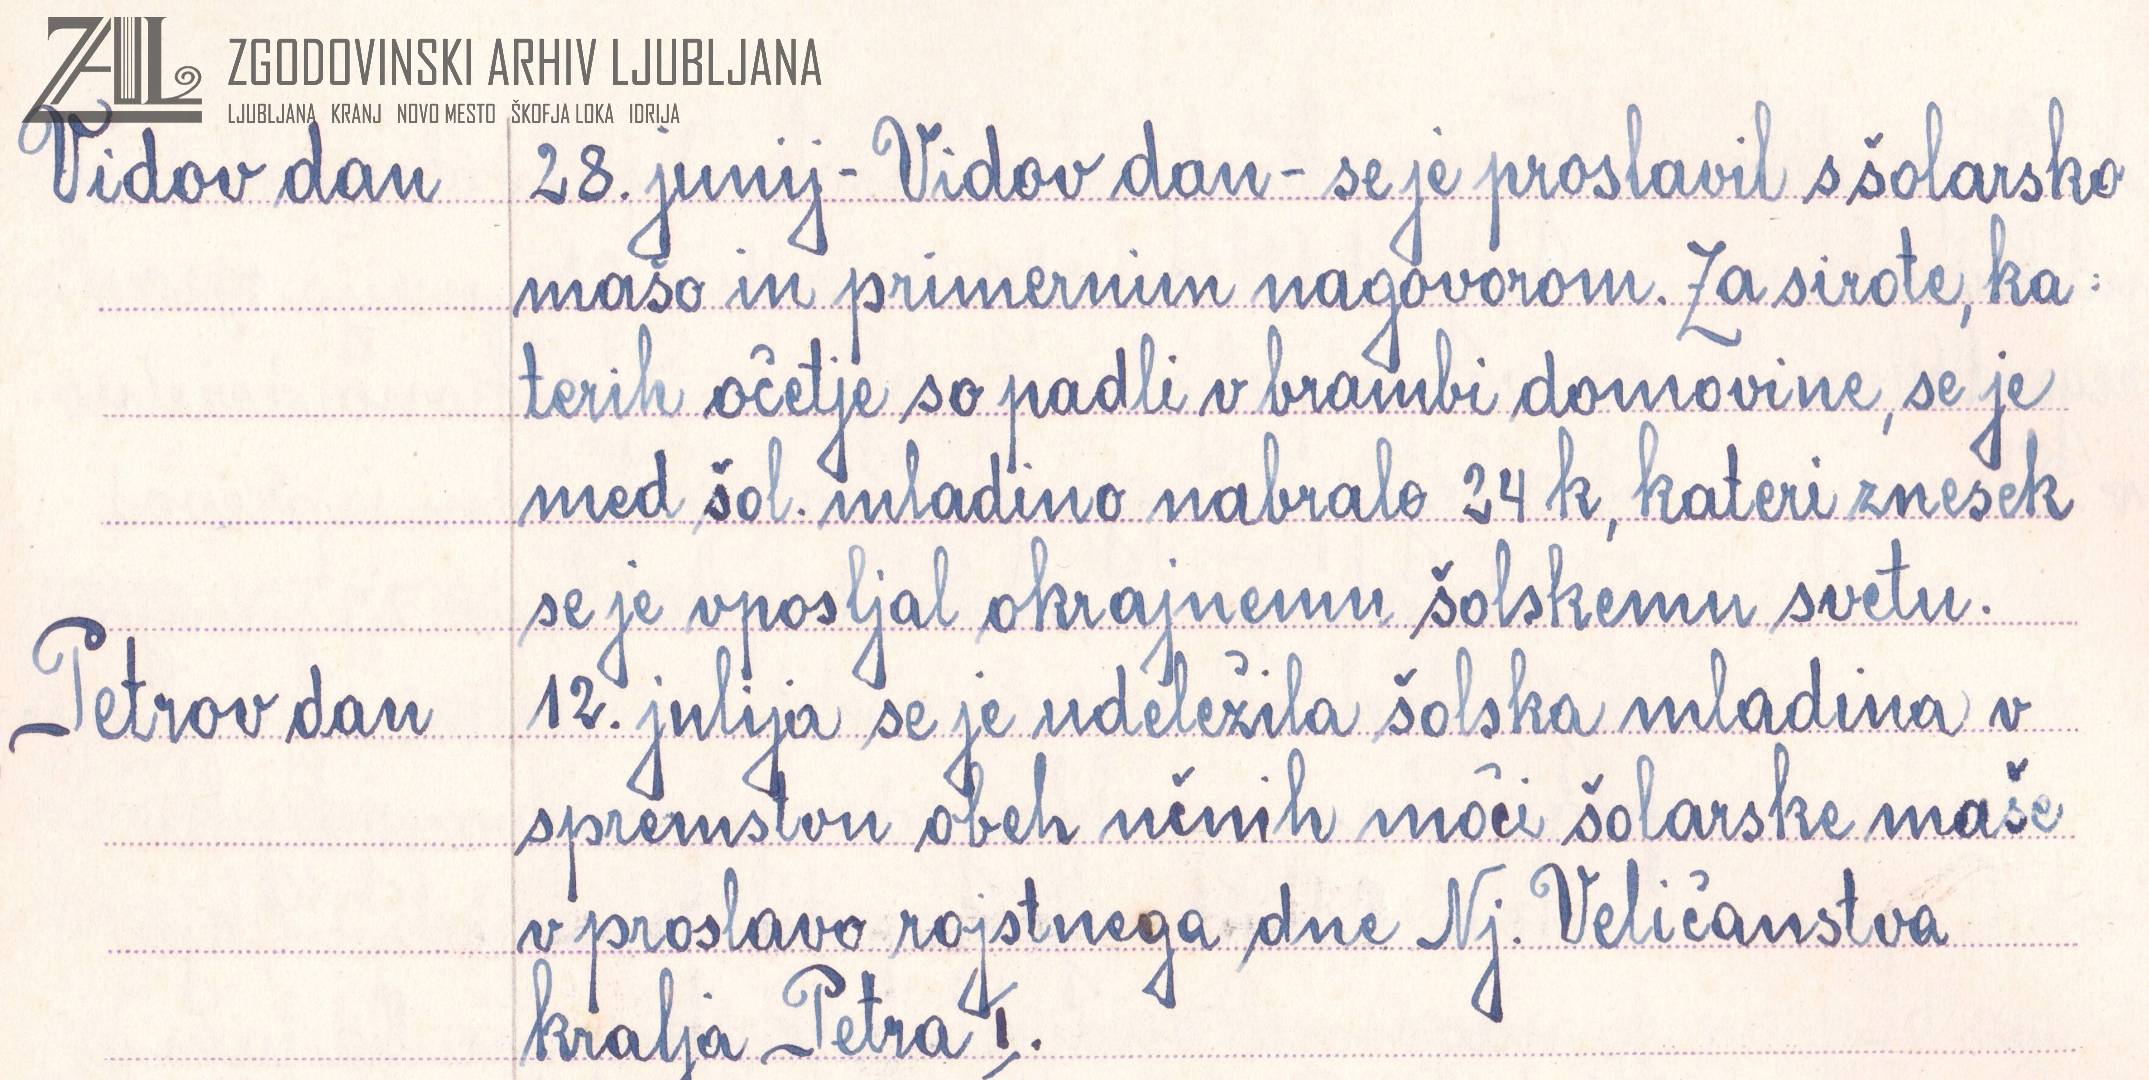 ZGODOVINSKI ARHIV LJUBLJANA
LJUBLJANA KRANJ NOVO MESTO ŠKOFJA LOKA IDRIJA
Vidov dan 28. junij - Vidov dan - se je proslavil s šolarsko
mašo in primernim nagovorom. Za sirote, ka:
terih očetje so padli v brambi domovine, se je
med šol. mladino nabralo 24 k, kateri znesek
se je vposljal okrajnemu šolskemu svetu.
Petrov dan 12. julija se je udeležila šolska mladina v
spremstvu obeh učnih moči šolarske maše
v proslavo rojstnega dne Nj. Veličanstva
kralja Petra I.